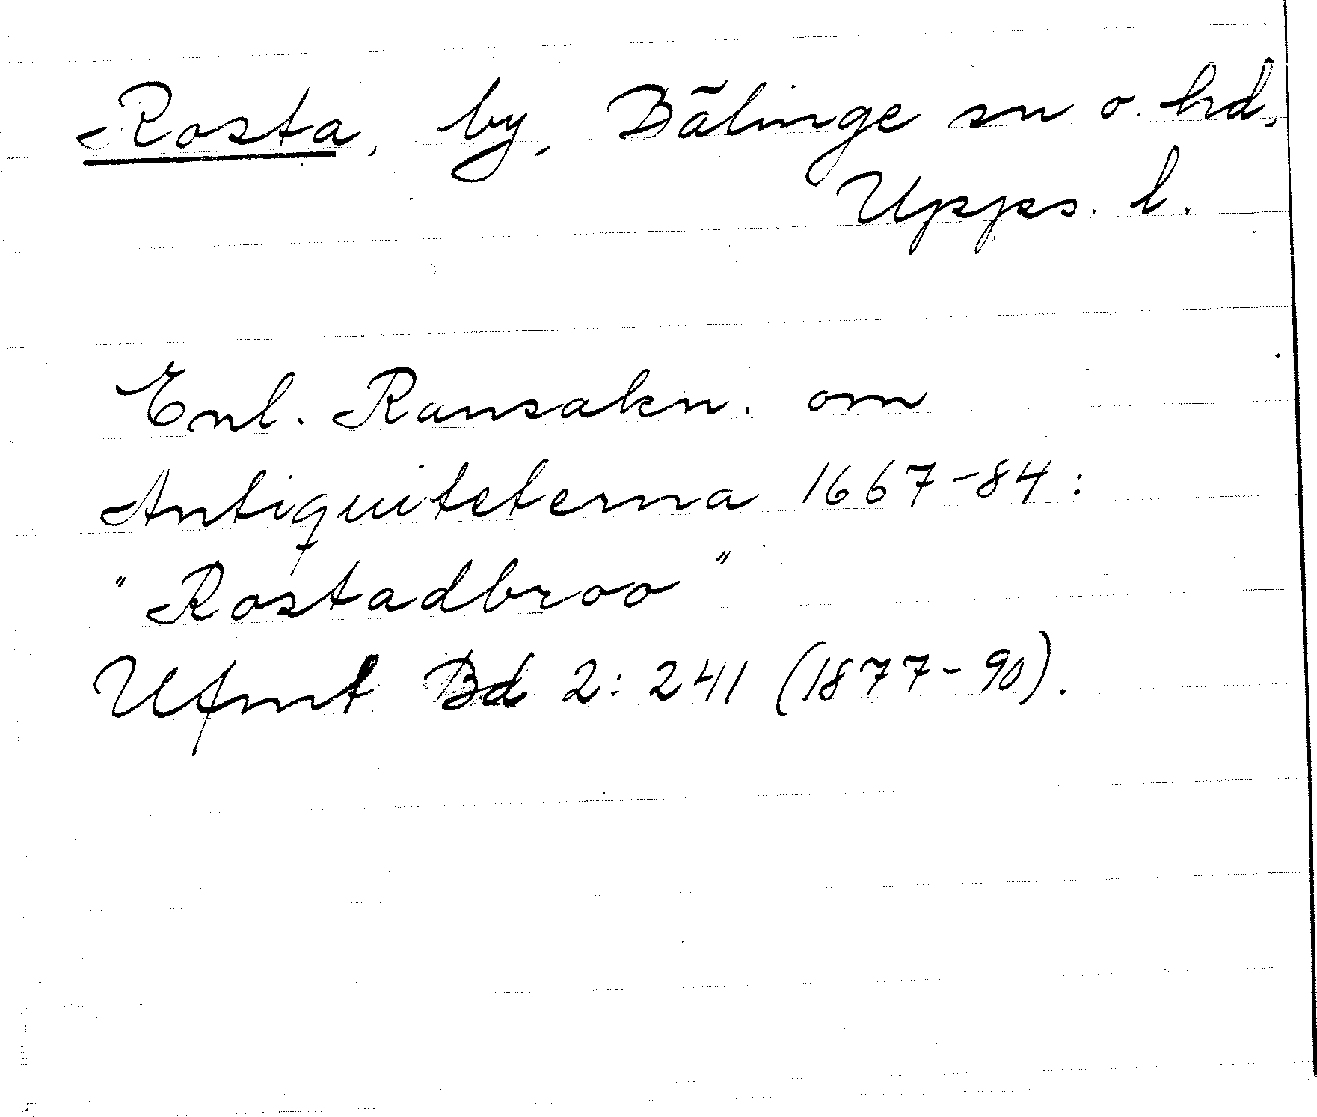 Rosta, by, Bälinge sn o. hd,
Upps. l.
Enl. Ransakn. om
Antiquiteterna 1667-84:
"Rostadbroo"
Ufmt Bd 2: 241 (1877-90).